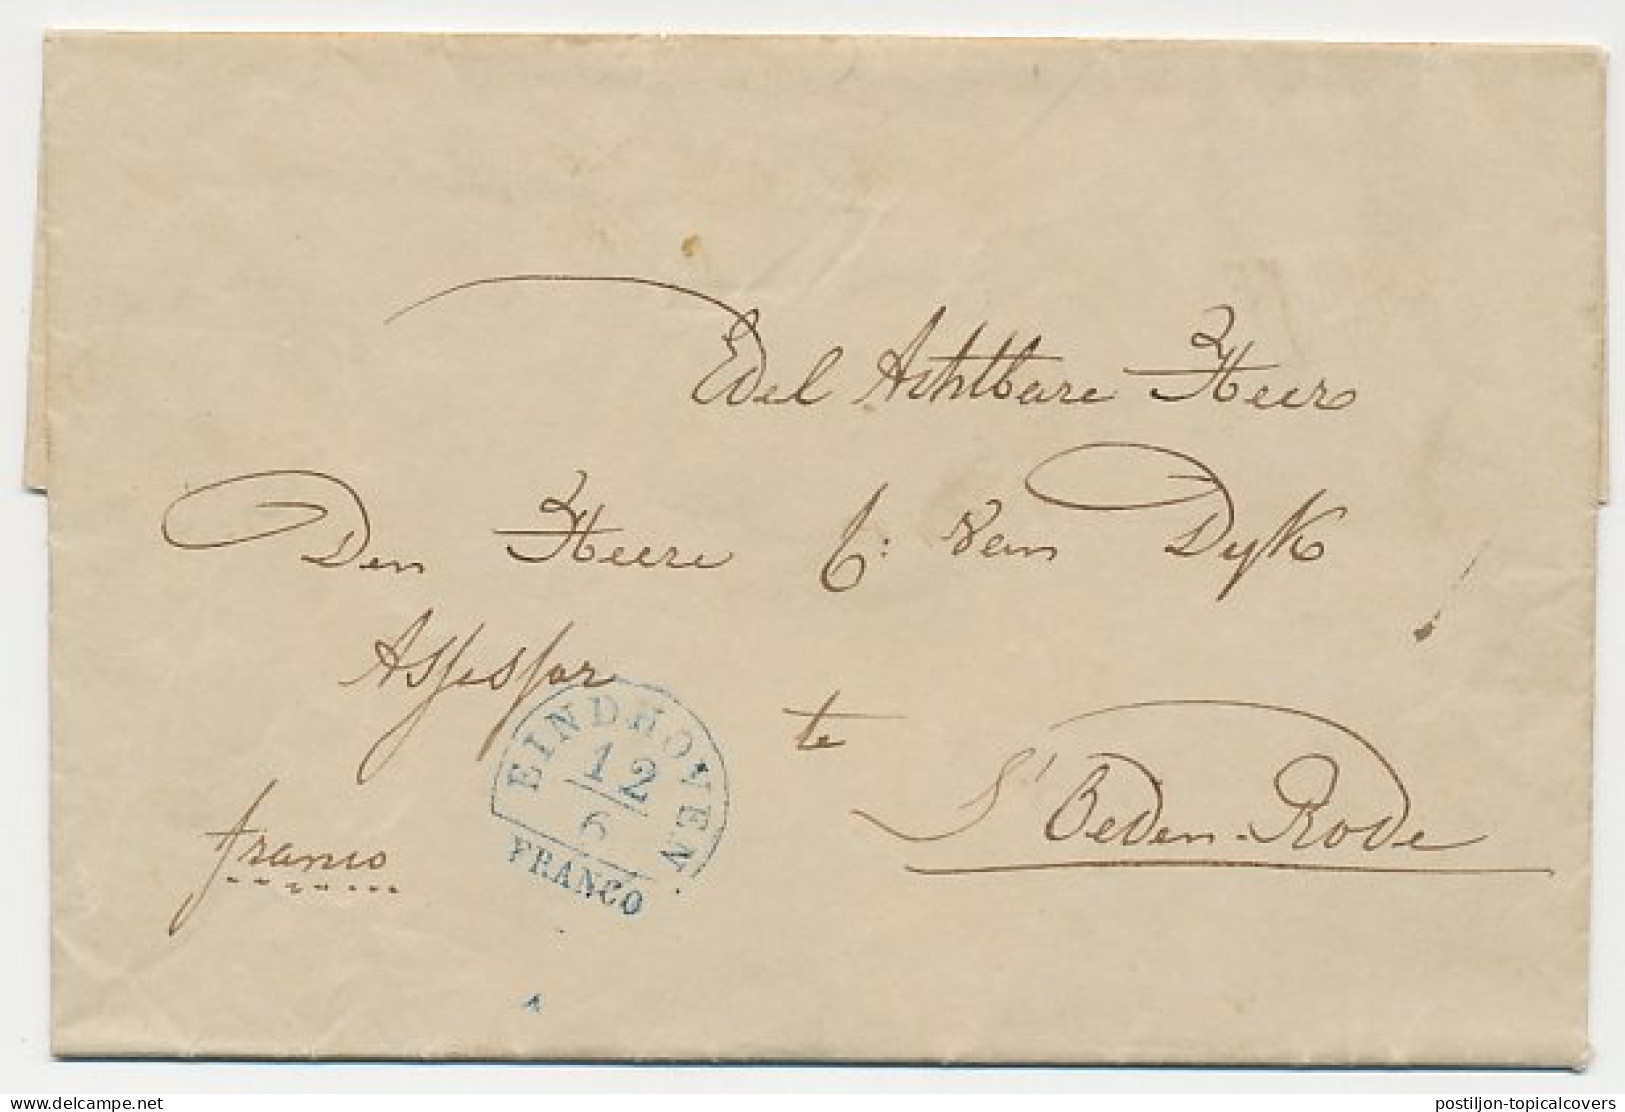 Edel Achtbare Heer
Den Heere C: van Dyk
Assessor
te
St Oeden-Rode
franco
EINDHOVEN
12
6
FRANCO
delcampe.net
postiljon-topicalcovers